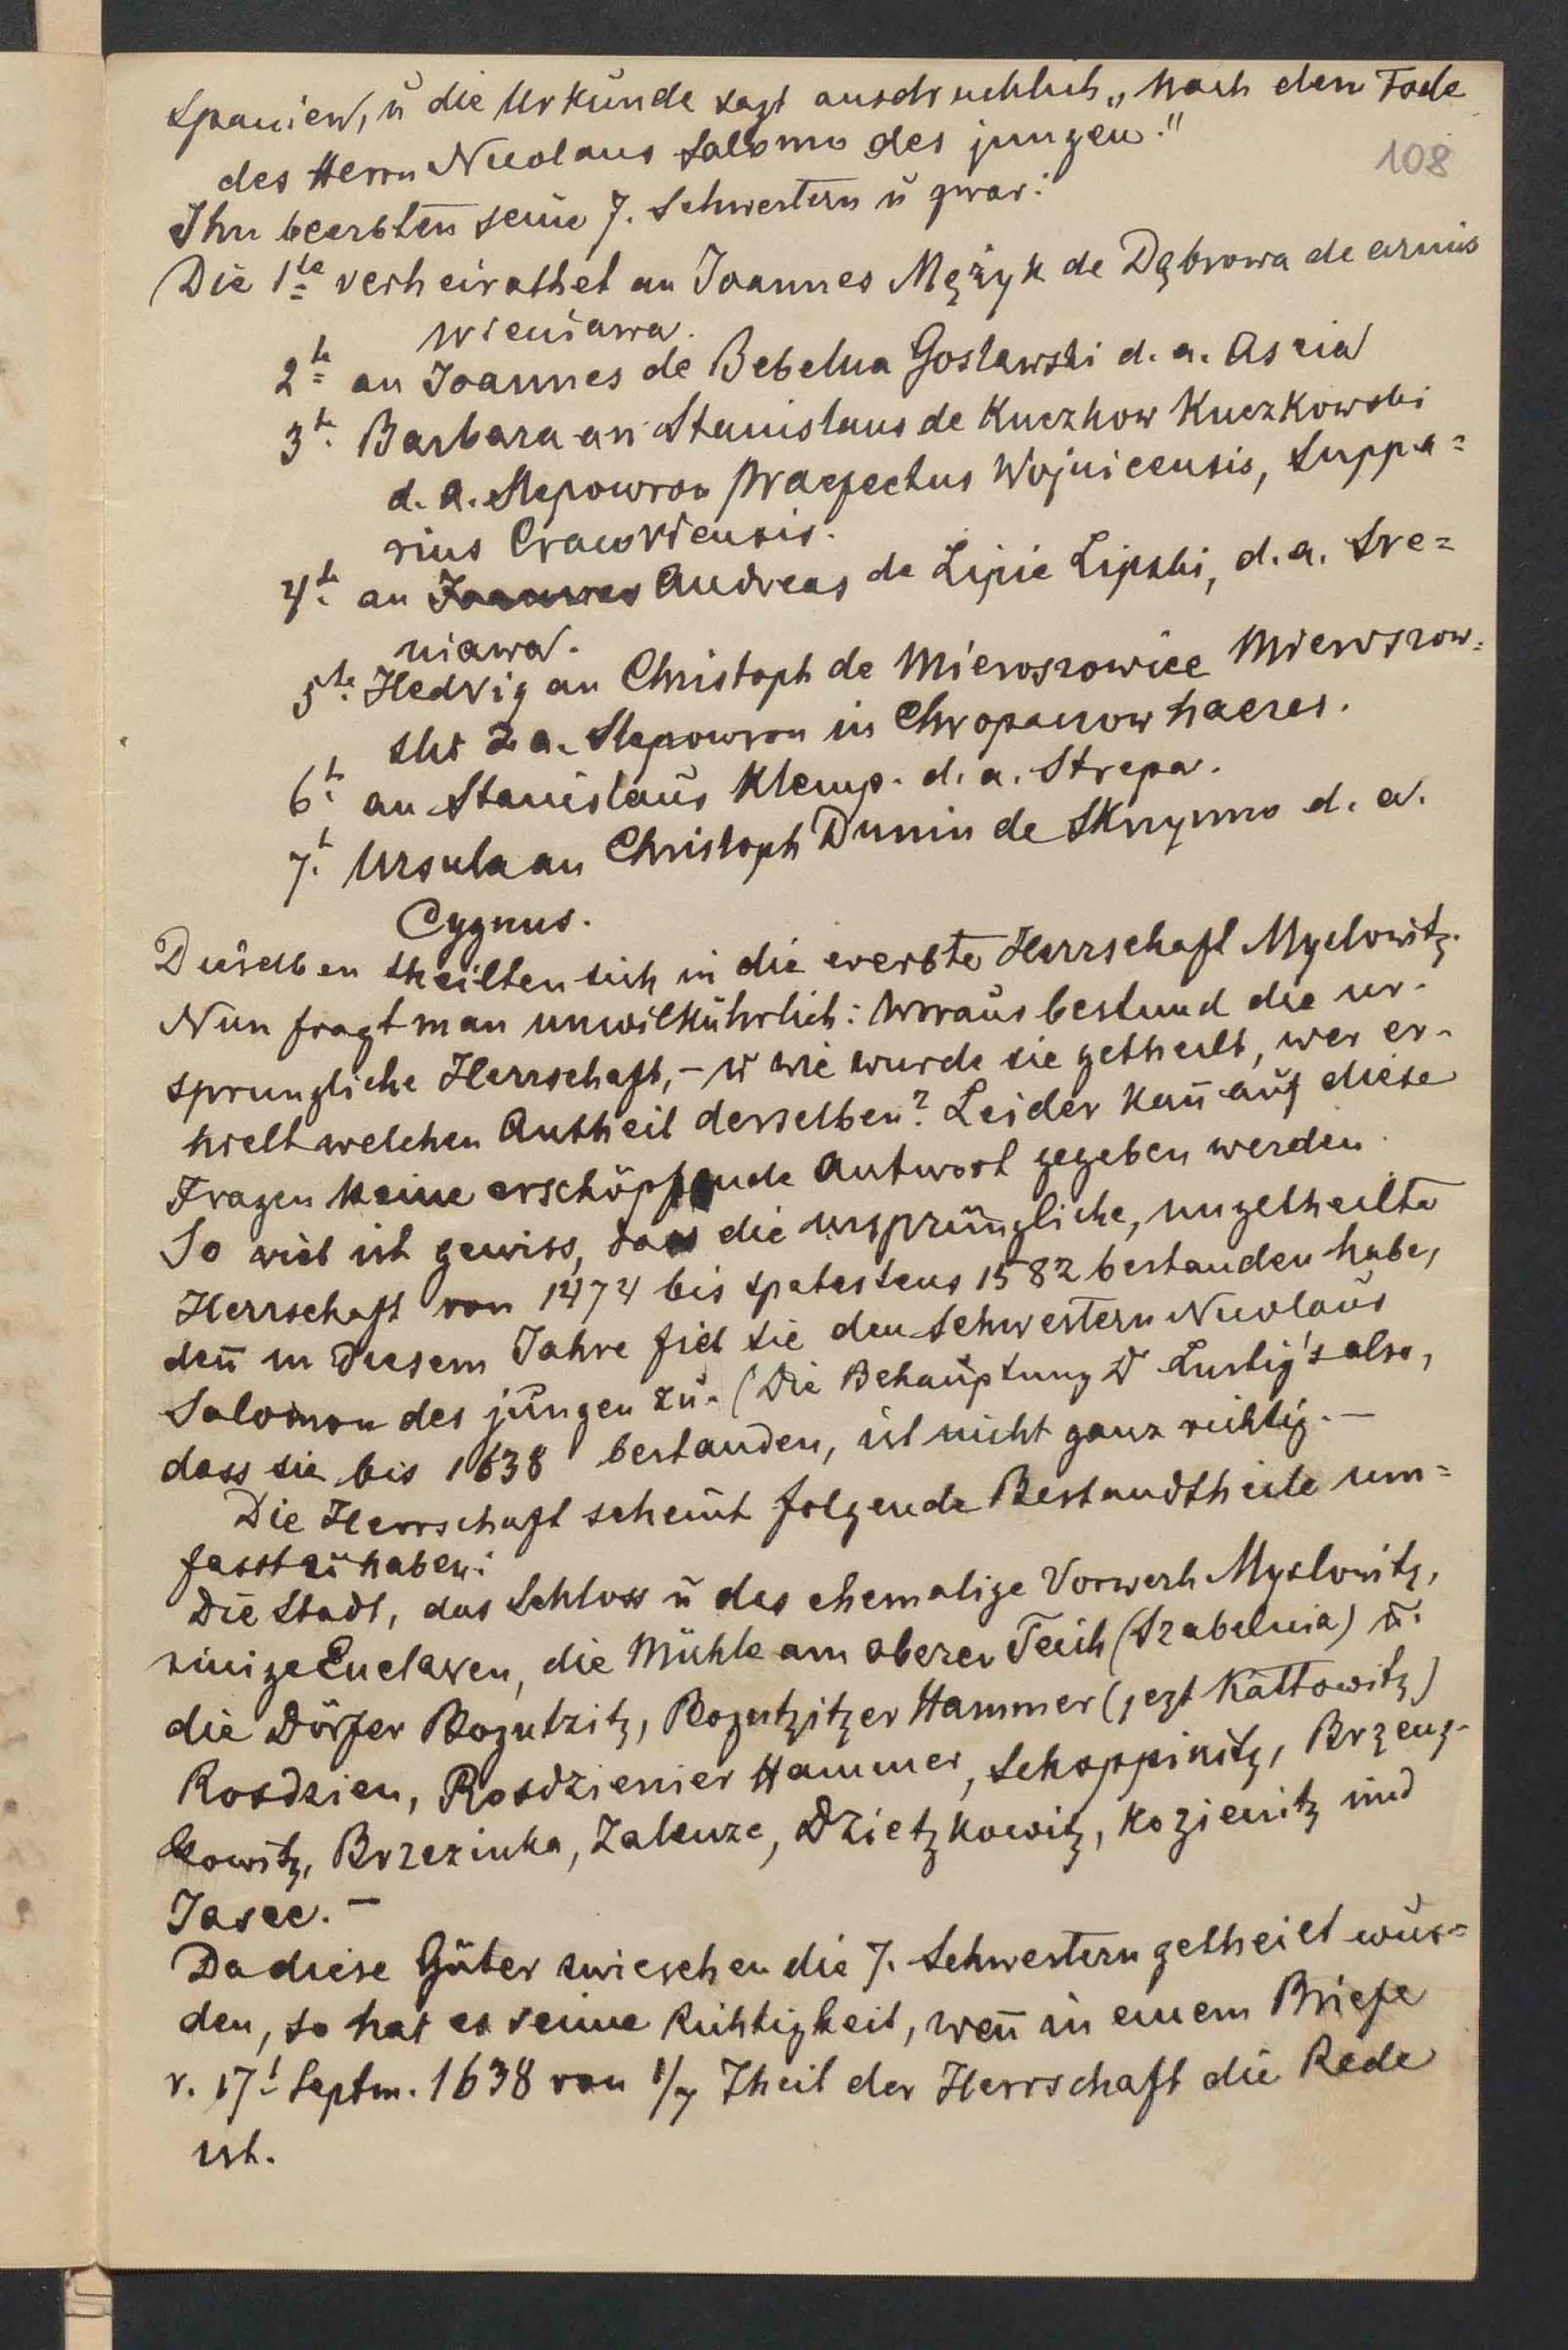 Spanien, ŭ die Urkunde sagt ausdruchlich „Nach dem Tode
des Herrn Nicolaus Salomo des jungen."
108
Ihn beerbten seine 7. Schwestern ŭ zwar:
Die 1te verheirathet an Joannes Mężyk de Dąbrowa de armis
Wieniawa.
2te an Joannes de Bebelna Gosławski d. a. Ascia
3te Barbara an Stanislaus de Kuczkow Kuczkowski
d. a. Slepowron Praefectus Wojnicensis, Suppa=
rius Cracoviensis.
4te an Joannes Andreas de Lipie Lipski, d. a. Sre=
niawa.
5te Hedvig an Christoph de Mieroszowice Mieroszow=
ski d. a. Slepowron in Chropaczow haeres.
6te an Stanislaŭs Klemp. d. a. Strepa.
7t. Ursula an Christoph Dunin de Skrzynno d. a.
Cygnus.
Dieselben theilten sich in die ererbte Herrschaft Myslowitz.
Nun fragt man unwilkührlich: Woraŭs bestund die ur-
sprungliche Herrschaft, – ŭ wie wurde sie getheilt, wer er-
hielt welchen Antheil derselben? Leider kan̄ aŭf diese
Fragen keine erschöpfende Antwort gegeben werden
So viel ist gewiss, dass die ursprüngliche, ungetheilte
Herrschaft von 1474 bis spatestens 1582 bestanden habe,
den̄ in diesem Jahre fiel sie den Schwestern Nicolaŭs
Salomon des jŭngen zŭ. (Die Behaŭptung D Lustig's also,
dass sie bis 1638 bestanden, ist nicht ganz richtig. –
Die Herrschaft scheint folgende Bestandtheile um=
fasst zŭ haben:
Die Stadt, das Schloss ŭ das ehemalige Vorwerk Myslowitz,
einige Enclaven, die Mühle am oberen Teich (Szabelnia) ŭ.
die Dörfer Bogutzitz, Bogutzitzer Hammer (jezt Kattowitz)
Rosdzien, Rosdzienier Hammer, Schoppinitz, Brzeng-
kowitz, Brzezinka, Zalenze, Dzietzkowitz, Kozienitz ŭnd
Jasec. –
Da diese Güter zwieschen die 7. Schwestern getheilt wŭr=
den, so hat es seine Richtigkeit, wen̄ in einem Briefe
v. 17t Septm. 1638 von 1/7 Theil der Herrschaft die Rede
ist.